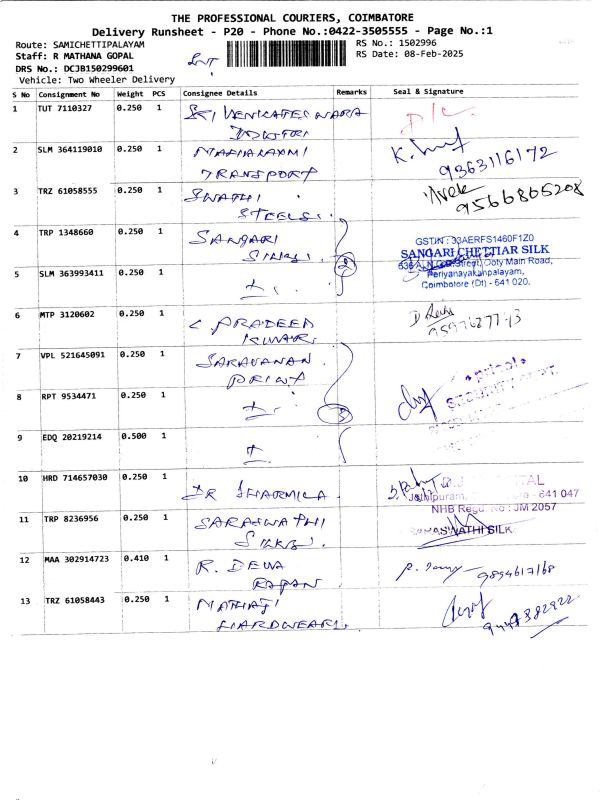 THE PROFESSIONAL COURIERS, COIMBATORE
Delivery Runsheet - P20 - Phone No.:0422-3505555 - Page No.:1
Route: SAMICHETTIPALAYAM RS No.: 1502996
Staff: R MATHANA GOPAL RS Date: 08-Feb-2025
DRS No.: DCJB150299601
Vehicle: Two Wheeler Delivery
S No Consignment No Weight PCS Consignee Details Remarks Seal & Signature
1 TUT 7110327 0.250 1 SRI VENKATESWARA D/C.
2 SLM 364119010 0.250 1 MAHALAXMI
TRANSPORT 9363116172
3 TRZ 61058555 0.250 1 SWATHI
STEELS. 9566865208
4 TRP 1348660 0.250 1 SANGARI GSTIN : 33AERFS1460F1Z0
SANGARI CHETTIAR SILK
2 Street, Ooty Main Road,
5 SLM 363993411 0.250 1 Periyanayakanpalayam,
Coimbatore (Dt) - 641 020.
6 MTP 3120602 0.250 1 C PRADEEP
KUMAR.
7 VPL 521645091 0.250 1 SARAVANAN
PRINT pricol
8 RPT 9534471 0.250 1 3 SECURITY DEPT.
9 EDQ 20219214 0.500 1
10 HRD 714657030 0.250 1 DR SHARMILA. - 641 047
NHB Regd. No : JM 2057
11 TRP 8236956 0.250 1 SARASWATHI SARASWATHI SILK
SILKS.
12 MAA 302914723 0.410 1 R. DEVA 9894617168
RAJAN
13 TRZ 61058443 0.250 1 MATHAJI
HARDWEARI. 9447382922